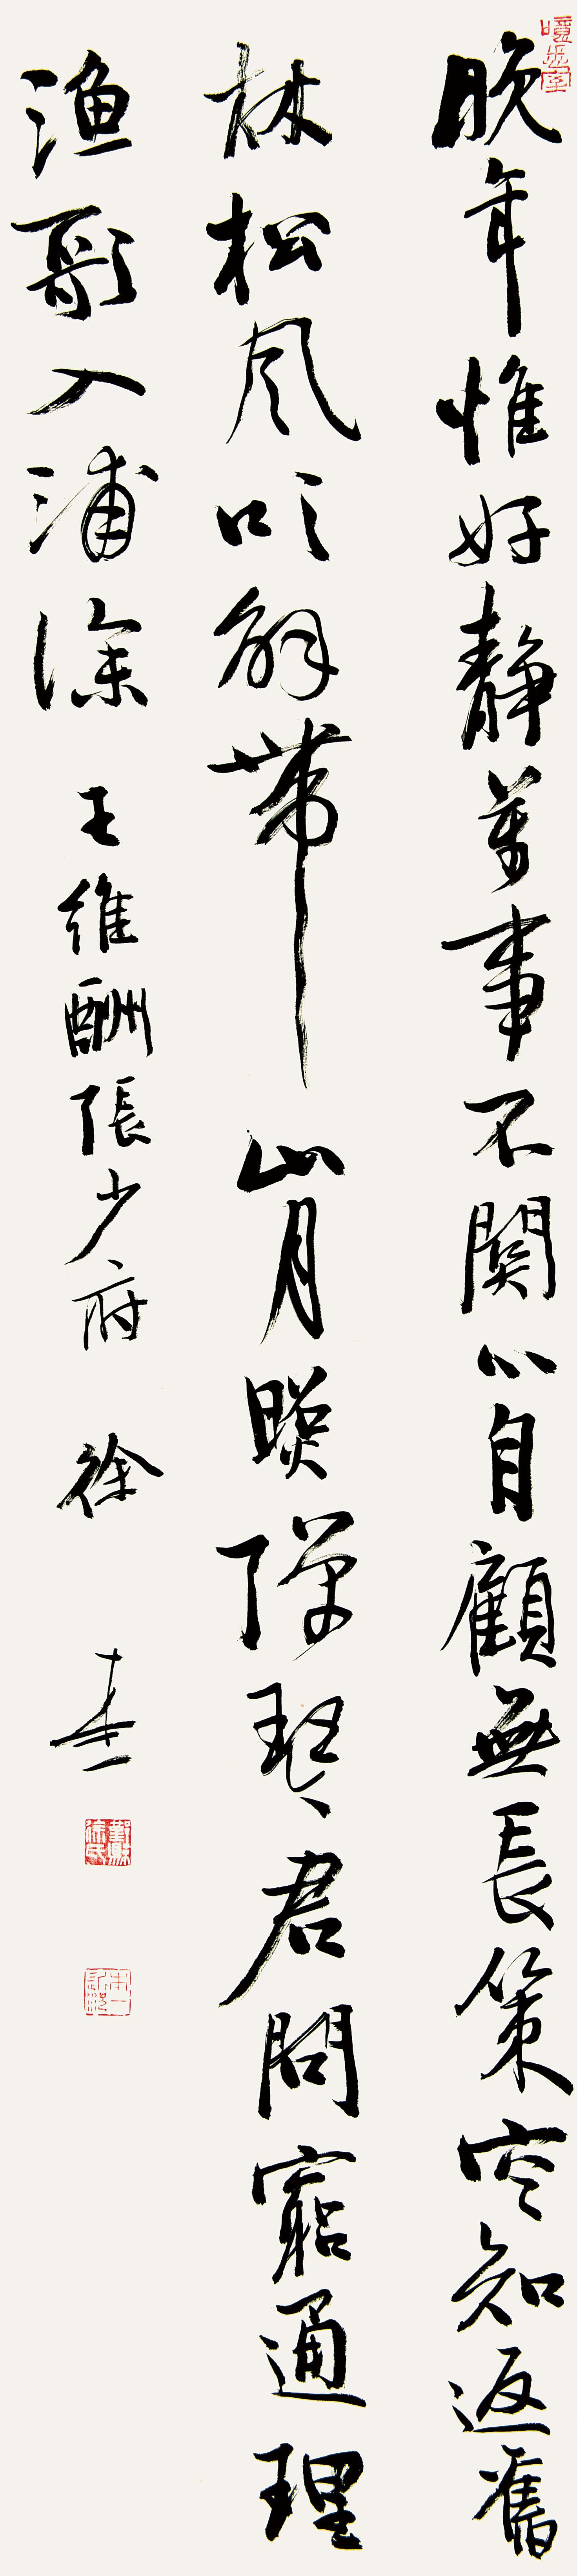 晚年惟好靜萬事不關心自顧無長策空知返舊
林松風吹解帶山月照彈琴君問窮通理
漁歌入浦深
王維酬張少府 徐